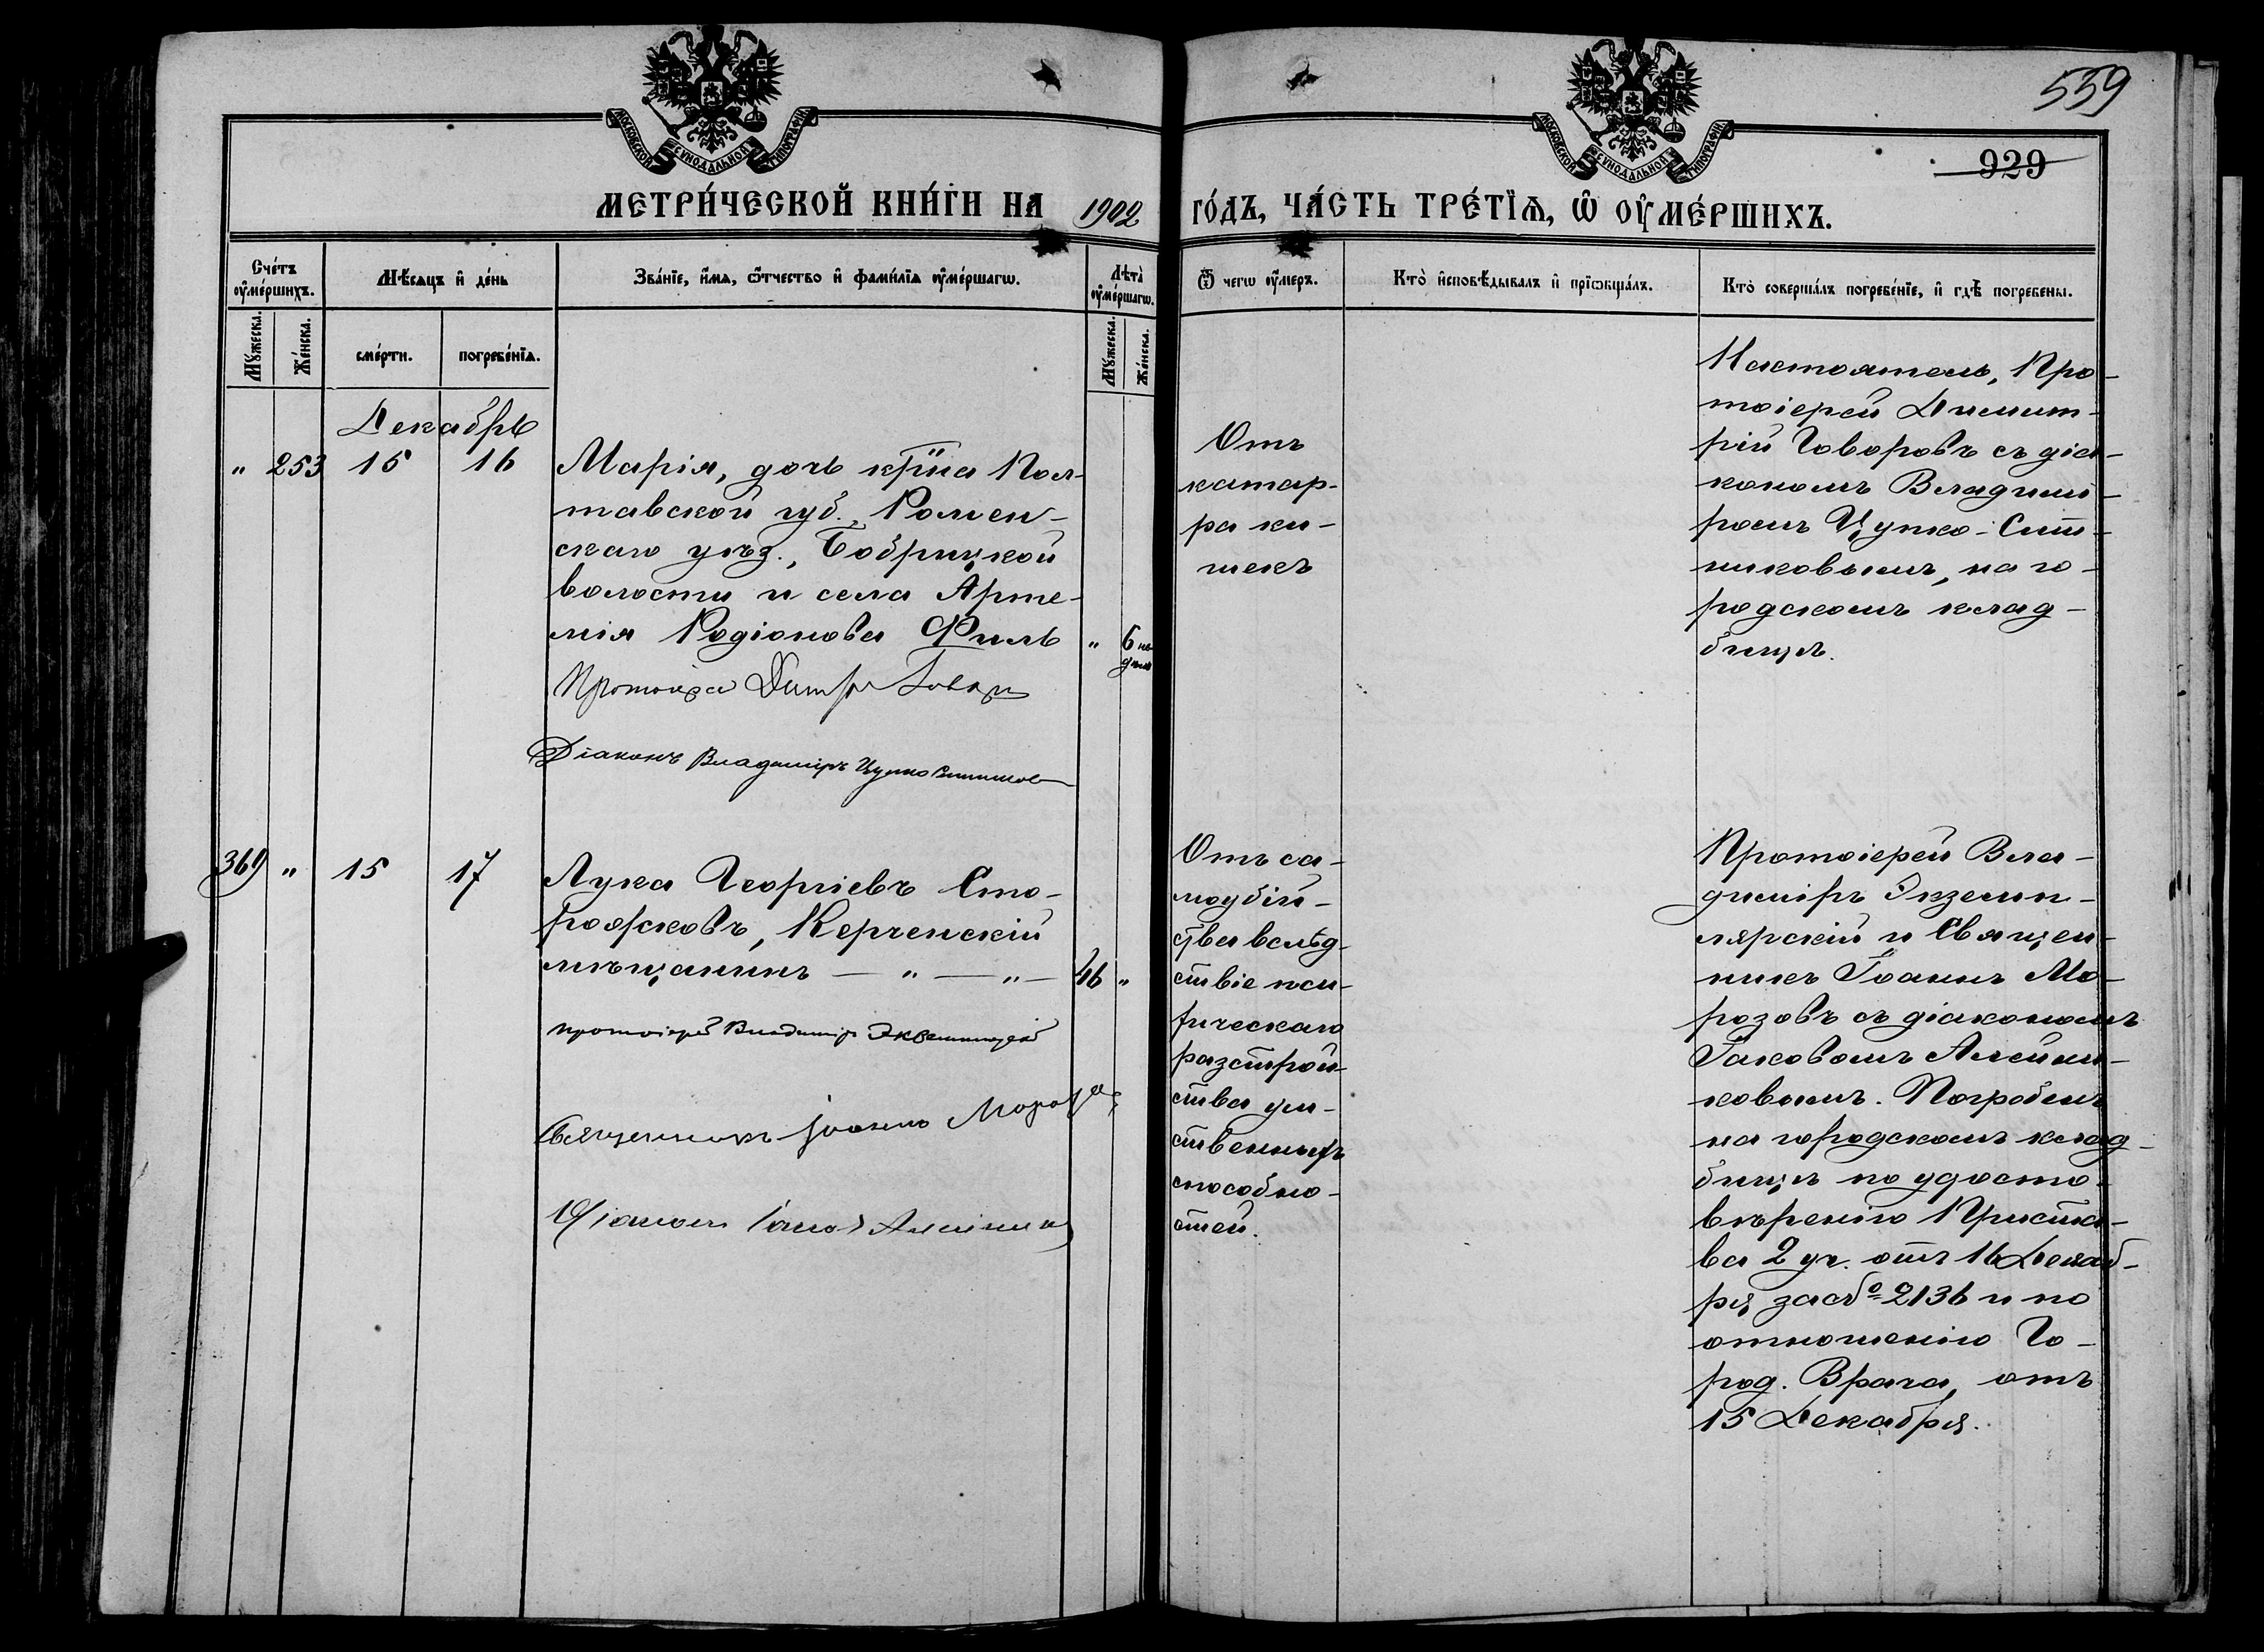 559
929
МОСКОВСКОЙ СѴНОДАЛЬНОЙ ТИПОГРАФІИ
МОСКОВСКОЙ СѴНОДАЛЬНОЙ ТИПОГРАФІИ
МЕТРИ́ЧЕСКОЙ КНИ́ГИ НА 1902 ГО́ДЪ, ЧА́СТЬ ТРЕ́ТЇѦ, Ѡ ОУМЕ́РШИХЪ.
Сче́тъ оуме́ршихъ.
Мѣ́сяцъ и де́нь
Зва́нїе, и́мѧ, ѻ҆́тчество и фами́лїѧ оуме́ршагѡ.
Лѣта̀ оуме́ршагѡ.
Ѿ чегѡ оу́меръ.
Кто̀ исповѣ́дывалъ и прїѡбща́лъ.
Кто̀ соверша́лъ погребе́нїе, и гдѣ̀ погребены.
Мꙋ́жеска.
Же́нска.
сме́рти.
погребе́нїѧ.
Мꙋ́жеска.
Же́нска.
Декабрь
" 253 15 16
Марія, дочь кр̃на Пол-
тавской губ., Ромен-
скаго уѣз., Бобрицкой
волости и села Арте-
мія Родіонова Филь
" 6 не-
дѣль
Протоіерей Димитр Говоров
Діаконъ Владиміръ Цупко Ситников
Отъ
катар-
ра ки-
шекъ
Настоятель, Про-
тоіерей Димит-
рій Говоровъ съ діа-
кономъ Владимі-
ромъ Цупко-Сит-
никовымъ, на го-
родскомъ клад-
бищѣ.
369 " 15 17
Лука Георгіевъ Сто-
рожковъ, Керченскій
мѣщанинъ — " — " —
46 "
протоіерей Владимір Экземплярскій
Священникъ Іоаннъ Морозов
Діаконъ Іаков Алейников
Отъ са-
моубій-
ства вслѣд-
ствіе пси-
хическаго
разстрой-
ства ум-
ственныхъ
способно-
стей.
Протоіерей Вла-
диміръ Экземп-
лярскій и Священ-
никъ Іоаннъ Мо-
розовъ съ діакономъ
Іаковомъ Алейни-
ковымъ. Погребенъ
на городскомъ клад-
бищѣ по удосто-
вѣренію Приста-
ва 2 уч. отъ 16 Декаб-
ря за № 2136 и по
отношенію Го-
род. Врача, отъ
15 Декабря.